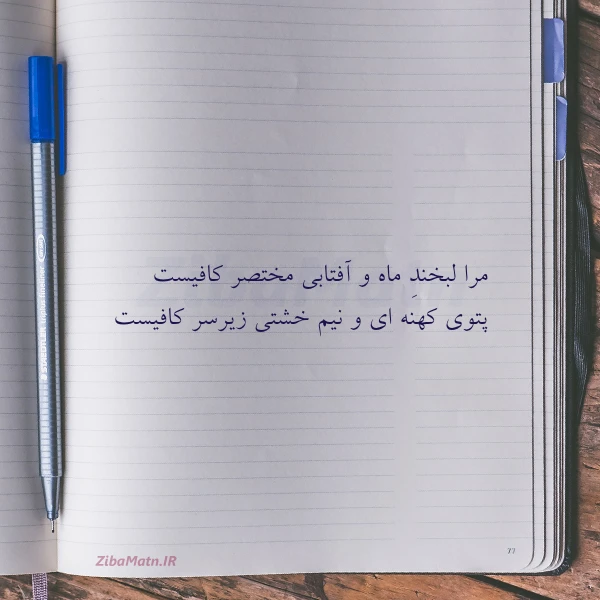 مرا لبخندِ ماه و آفتابی مختصر کافیست
پتوی کهنه ای و نیم خشتی زیرسر کافیست
77
ZibaMatn.IR